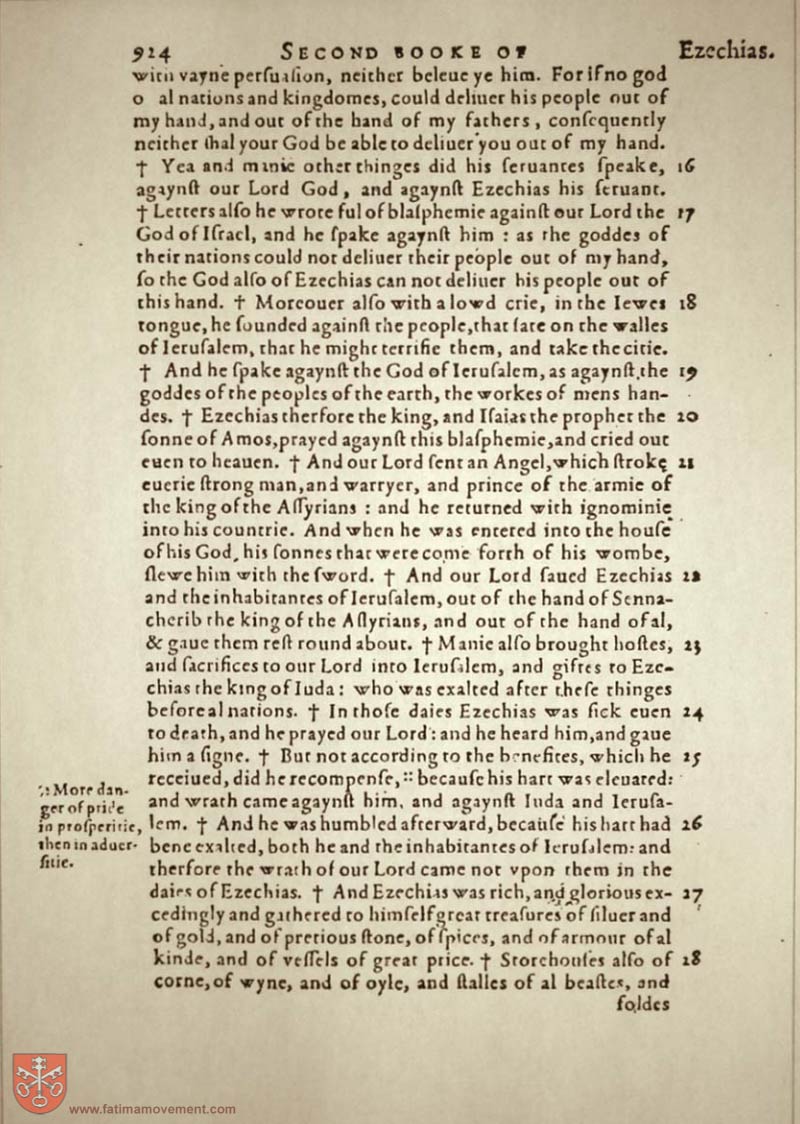 924 SECOND BOOKE OF Ezechias.
with vayne persuasion, neither beleue ye him. For if no god
o al nations and kingdomes, could deliuer his people out of
my hand, and out of the hand of my fathers, consequently
neither shal your God be able to deliuer you out of my hand.
† Yea and manie other thinges did his seruantes speake, 16
agaynst our Lord God, and agaynst Ezechias his seruant.
† Letters also he wrote ful of blasphemie against our Lord the 17
God of Israel, and he spake agaynst him : as the goddes of
their nations could not deliuer their people out of my hand,
so the God also of Ezechias can not deliuer his people out of
this hand. † Moreouer also with a lowd crie, in the Iewes 18
tongue, he sounded against the people, that sate on the walles
of Ierusalem, that he might terrifie them, and take the citie.
† And he spake agaynst the God of Ierusalem, as agaynst the 19
goddes of the peoples of the earth, the workes of mens han-
des. † Ezechias therfore the king, and Isaias the prophet the 20
sonne of Amos, prayed agaynst this blasphemie, and cried out
euen to heauen. † And our Lord sent an Angel, which stroke 21
euerie strong man, and warryer, and prince of the armie of
the king of the Assyrians : and he returned with ignominie
into his countrie. And when he was entered into the house
of his God, his sonnes that were come forth of his wombe,
slewe him with the sword. † And our Lord saued Ezechias 22
and the inhabitantes of Ierusalem, out of the hand of Senna-
cherib the king of the Assyrians, and out of the hand of al,
& gaue them rest round about. † Manie also brought hostes, 23
and sacrifices to our Lord into Ierusalem, and giftes to Eze-
chias the king of Iuda : who was exalted after these thinges
before al nations. † In those daies Ezechias was sick euen 24
to death, and he prayed our Lord : and he heard him, and gaue
him a signe. † But not according to the benefites, which he 25
receiued, did he recompense, :: because his hart was eleuated:
and wrath came agaynst him, and agaynst Iuda and Ierusa-
lem. † And he was humbled afterward, because his hart had 26
bene exalted, both he and the inhabitantes of Ierusalem: and
therfore the wrath of our Lord came not vpon them in the
daies of Ezechias. † And Ezechias was rich, and glorious ex- 27
cedingly and gathered to himself great treasures of siluer and
of gold, and of pretious stone, of spices, and of armour of al
kinde, and of vessels of great price. † Storehouses also of 28
corne, of wyne, and of oyle, and stalles of al beastes, and
foldes
:: More dan-
ger of pride
in prosperitie,
then in aduer-
sitie.
www.fatimamovement.com